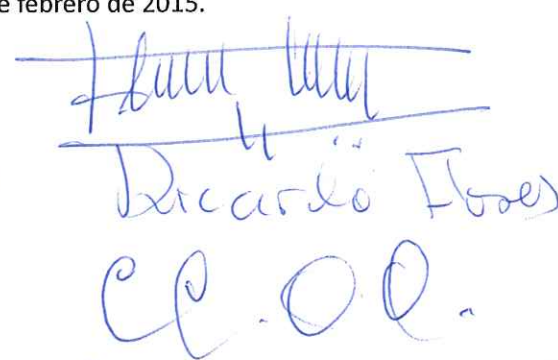 e febrero de 2015.
Ricardo Flores
CC.OO.